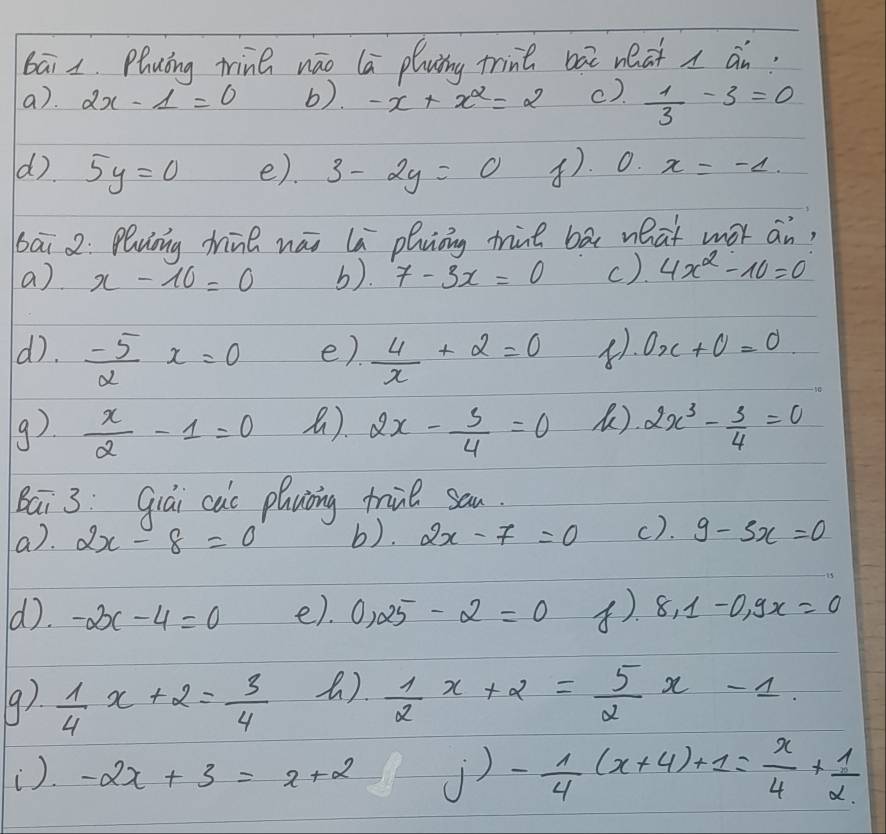 Bài 1. Phương trình nào là phương trình bậc nhất 1 ẩn:
a). 2x - 1 = 0 b). -x + x² = 2 c). 1/3 - 3 = 0
d). 5y = 0 e). 3 - 2y = 0 f). 0. x = -1.
Bài 2: Phương trình nào là phương trình bậc nhất một ẩn:
a). x - 10 = 0 b). 7 - 3x = 0 c). 4x² - 10 = 0
d). -5/2 x = 0 e). 4/x + 2 = 0 f). 0x + 0 = 0
g). x/2 - 1 = 0 h). 2x - 3/4 = 0 k). 2x³ - 3/4 = 0
Bài 3: Giải các phương trình sau.
a). 2x - 8 = 0 b). 2x - 7 = 0 c). 9 - 3x = 0
d). -2x - 4 = 0 e). 0,25 - 2 = 0 f). 8,1 - 0,9x = 0
g). 1/4 x + 2 = 3/4 h). 1/2 x + 2 = 5/2 x - 1.
i). -2x + 3 = x + 2 j) - 1/4 (x+4) + 1 = x/4 + 1/2.